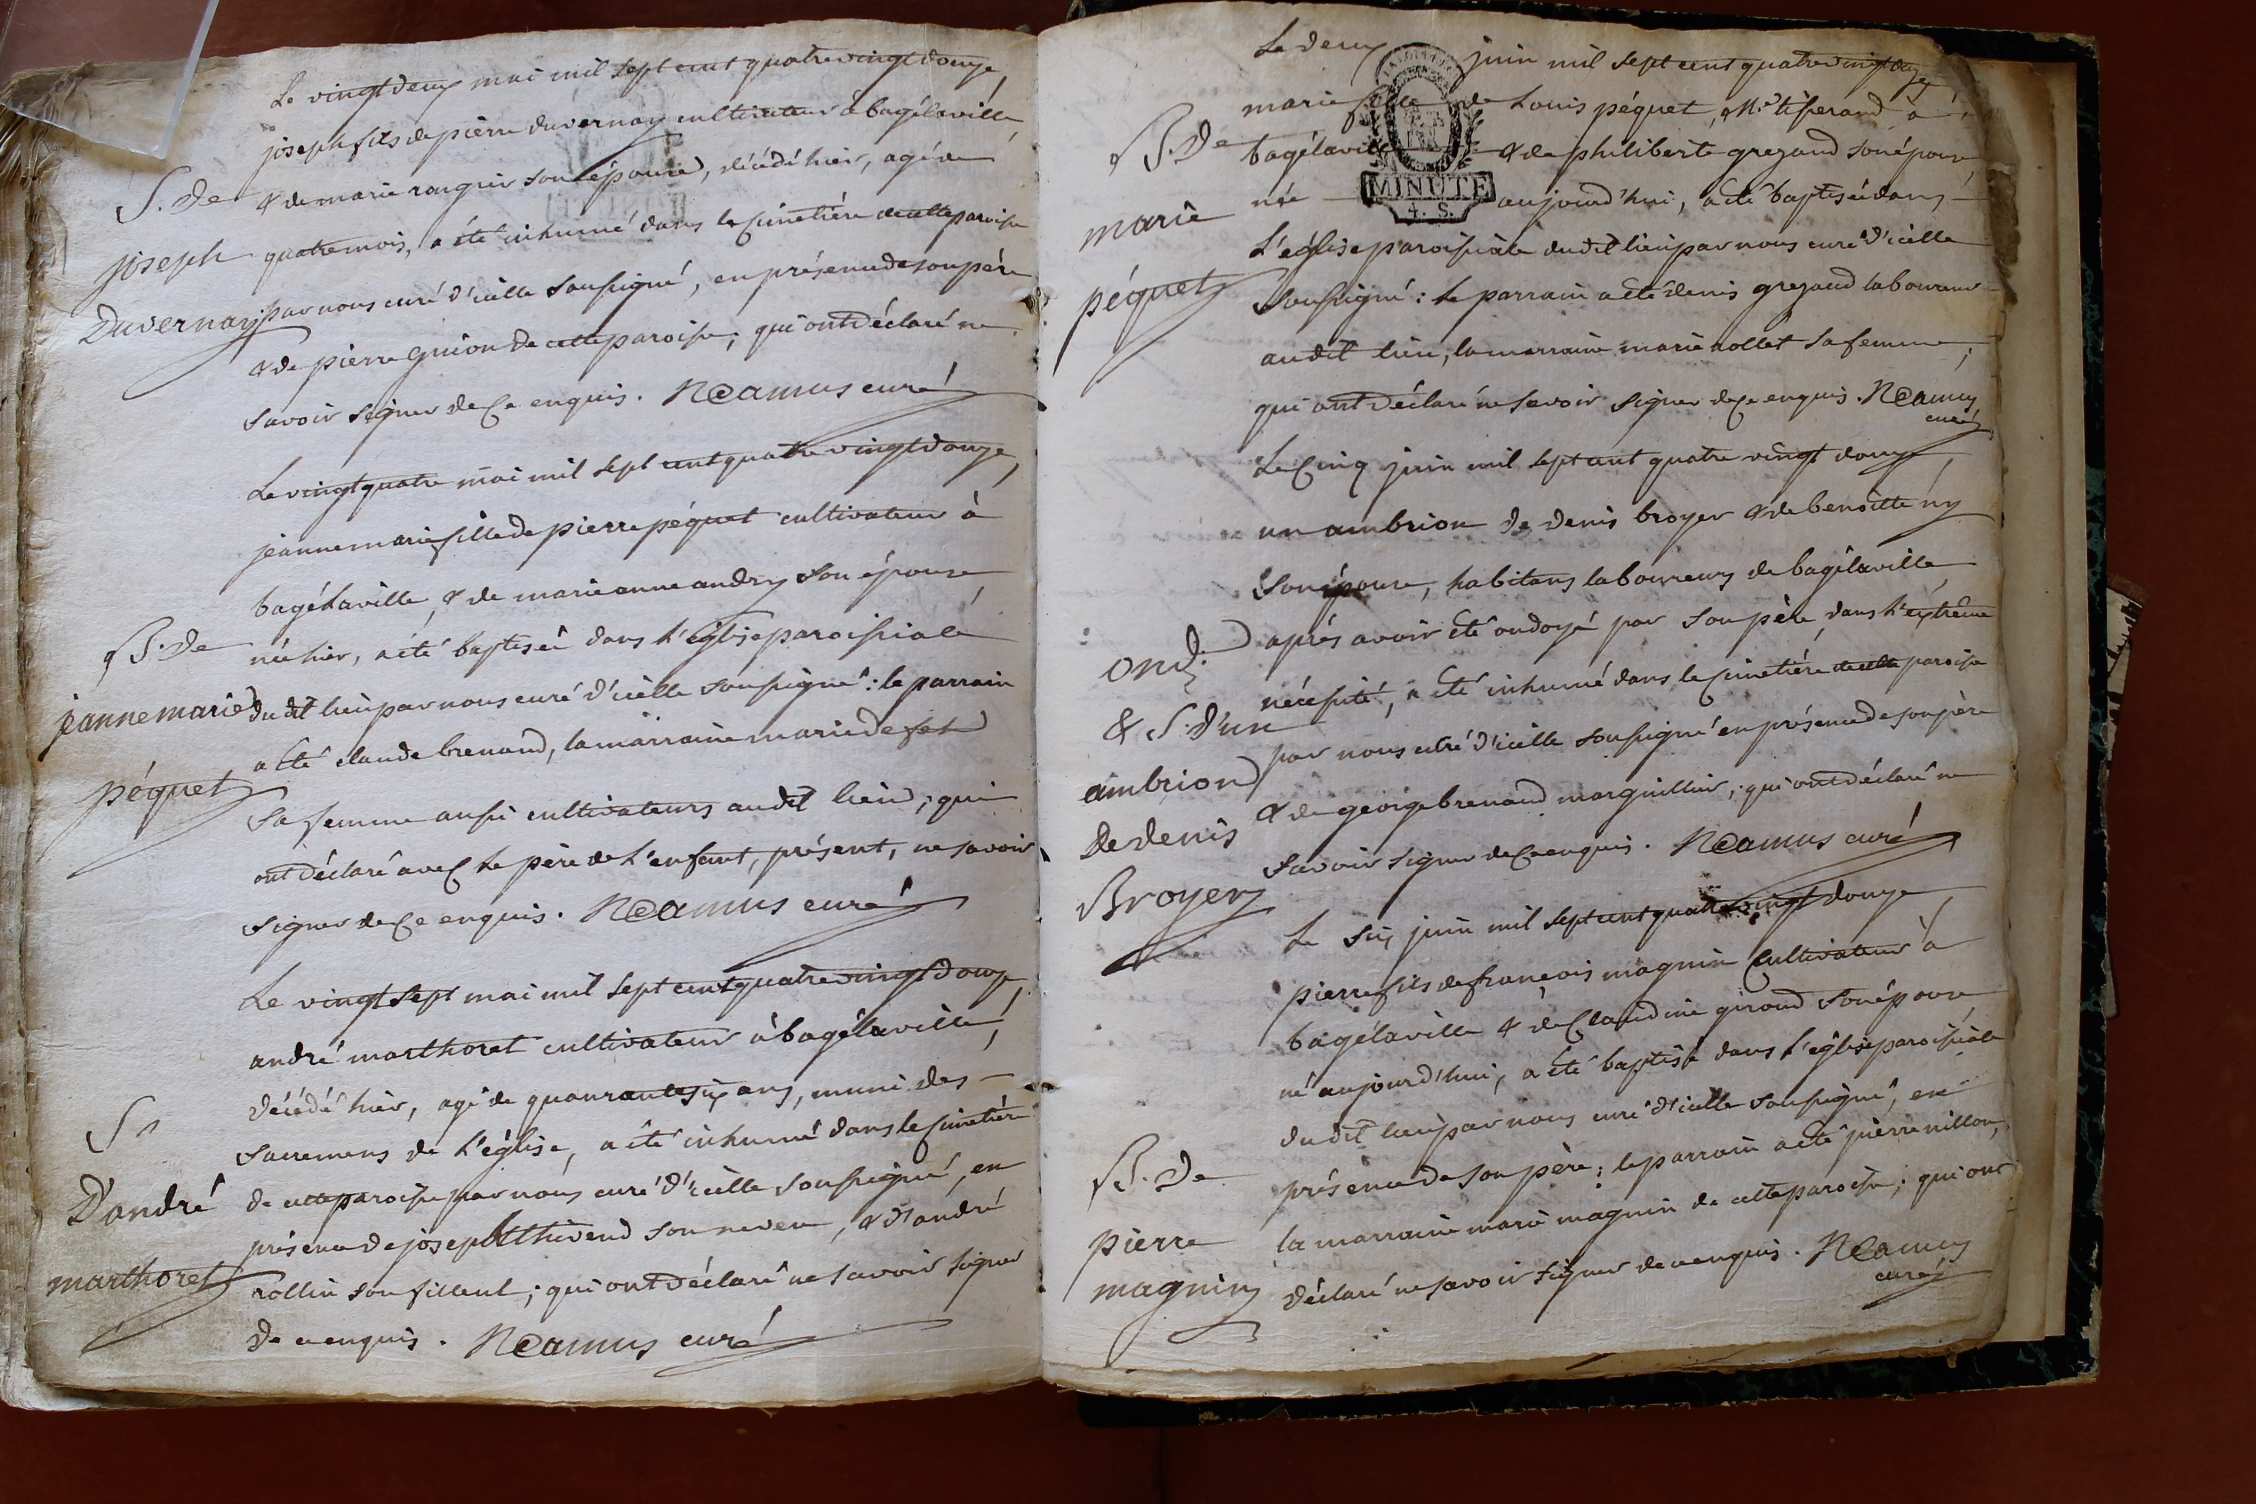 Le vingt deux mai mil sept cent quatre vingt douze,
joseph fils de pierre duvernay cultivateur à bagélaville,
S. de
& de marie son épouse, décédé hier, agé de
joseph
quatre mois, a été inhumé dans le cimetière de cette paroisse
Duvernay
par nous curé d'icelle soussigné, en présence de son père
& de pierre guion de cette paroisse; qui ont déclaré ne
savoir signer de ce enquis. Camus curé
Le vingt quatre mai mil sept cent quatre vingt douze,
jeanne marie fille de pierre péquet cultivateur à
bagélaville, & de marie anne andry son épouse
B. de
née hier, a été baptisée dans l'église paroissiale
jeanne marie
du dit lieu par nous curé d'icelle soussigné: le parrain
a été claude brenand, la marraine marie
péquet
sa femme aussi cultivateurs au dit lieu; qui
ont déclaré avec le père de l'enfant, présent, ne savoir
signer de ce enquis. Camus curé
Le vingt sept mai mil sept cent quatre vingt douze,
andré marthoret cultivateur à bagélaville,
décédé hier, agé de quarante six ans, muni des
S
sacremens de l'église, a été inhumé dans le cimetière
D'andré
de cette paroisse par nous curé d'icelle soussigné, en
présence de joseph thivend son neveu, & d'andré
marthoret
rollin son filleul; qui ont déclaré ne savoir signer
de ce enquis. Camus curé
Le deux juin mil sept cent quatre vingt douze,
marie fille de Louis péquet, Me tisserand à
B. de
bagélaville & de philiberte grezaud son épouse
née aujourd'hui, a été baptisée dans
MINUTE
4. S.
marie
L'église paroissiale du dit lieu par nous curé d'icelle
péquet
soussigné: le parrain a été denis grezaud laboureur
au dit lieu, la marraine marie rollet sa femme;
qui ont déclaré ne savoir signer de ce enquis. Camus
curé
Le cinq juin mil sept cent quatre vingt douze
un ambrion de denis broyer & de benoitte ny
son épouse, habitans laboureurs de bagélaville
ond.
après avoir été ondoyé par son père, dans l'extrême
& S. d'un
nécessité, a été inhumé dans le cimetière de cette paroisse
ambrion
par nous curé d'icelle soussigné en présence de son père
De denis
& de george brenand marguillier; qui ont déclaré ne
Broyer
savoir signer de ce enquis. Camus curé
Le six juin mil sept cent quatre vingt douze
pierre fils de françois magnin cultivateur à
bagélaville & de claudine giroud son épouse
né aujourd'hui, a été baptisé dans l'église paroissiale
du dit lieu par nous curé d'icelle soussigné, en
B. de
présence de son père: le parrain a été pierre nillon,
pierre
la marraine marie magnin de cette paroisse; qui ont
magnin
déclaré ne savoir signer de ce enquis. Camus
curé